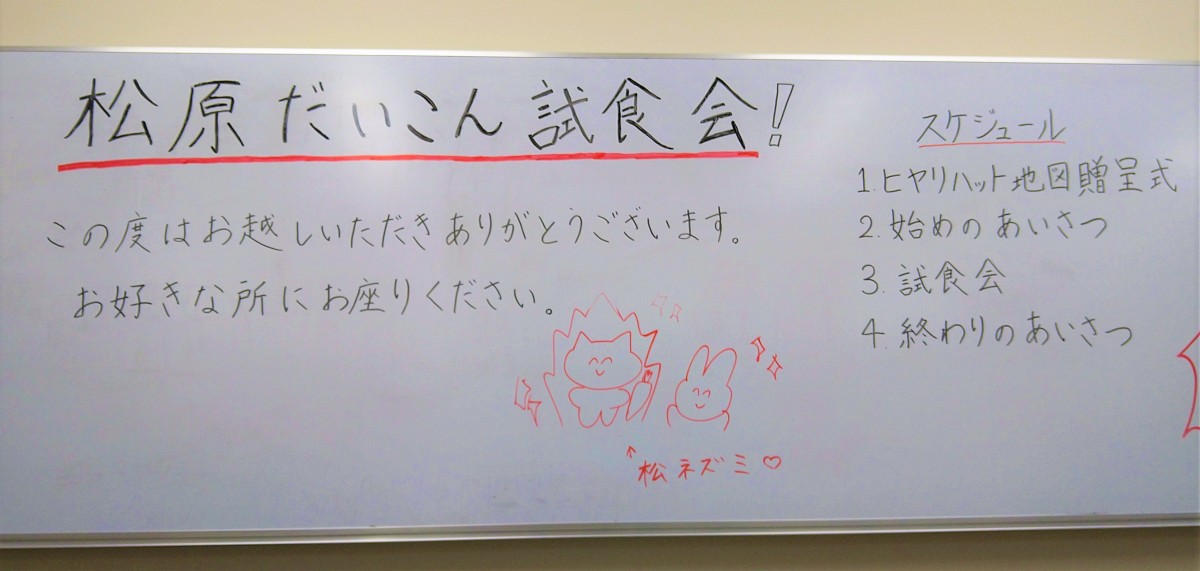 松原だいこん試食会!
この度はお越しいただきありがとうございます。
お好きな所にお座りください。
↑松ネズミ♡
スケジュール
1.ヒヤリハット地図贈呈式
2.始めのあいさつ
3.試食会
4.終わりのあいさつ